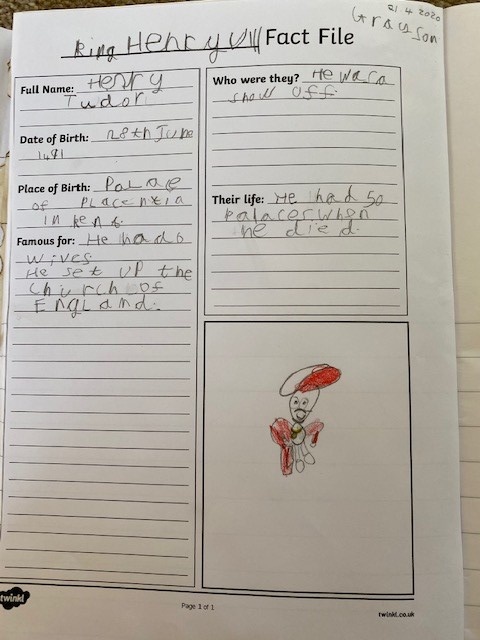 21.4.2020
Grayson
King Henry VIII Fact File
Full Name: Henry
Tudor
Date of Birth: 28th June
1491
Place of Birth: Palace
of Placentia
in Kent.
Famous for: He had 6
wives.
He set up the
church of
England.
Who were they? He was a
show off.
Their life: He had 50
palaces when
he died.
twinkl
Page 1 of 1
twinkl.co.uk